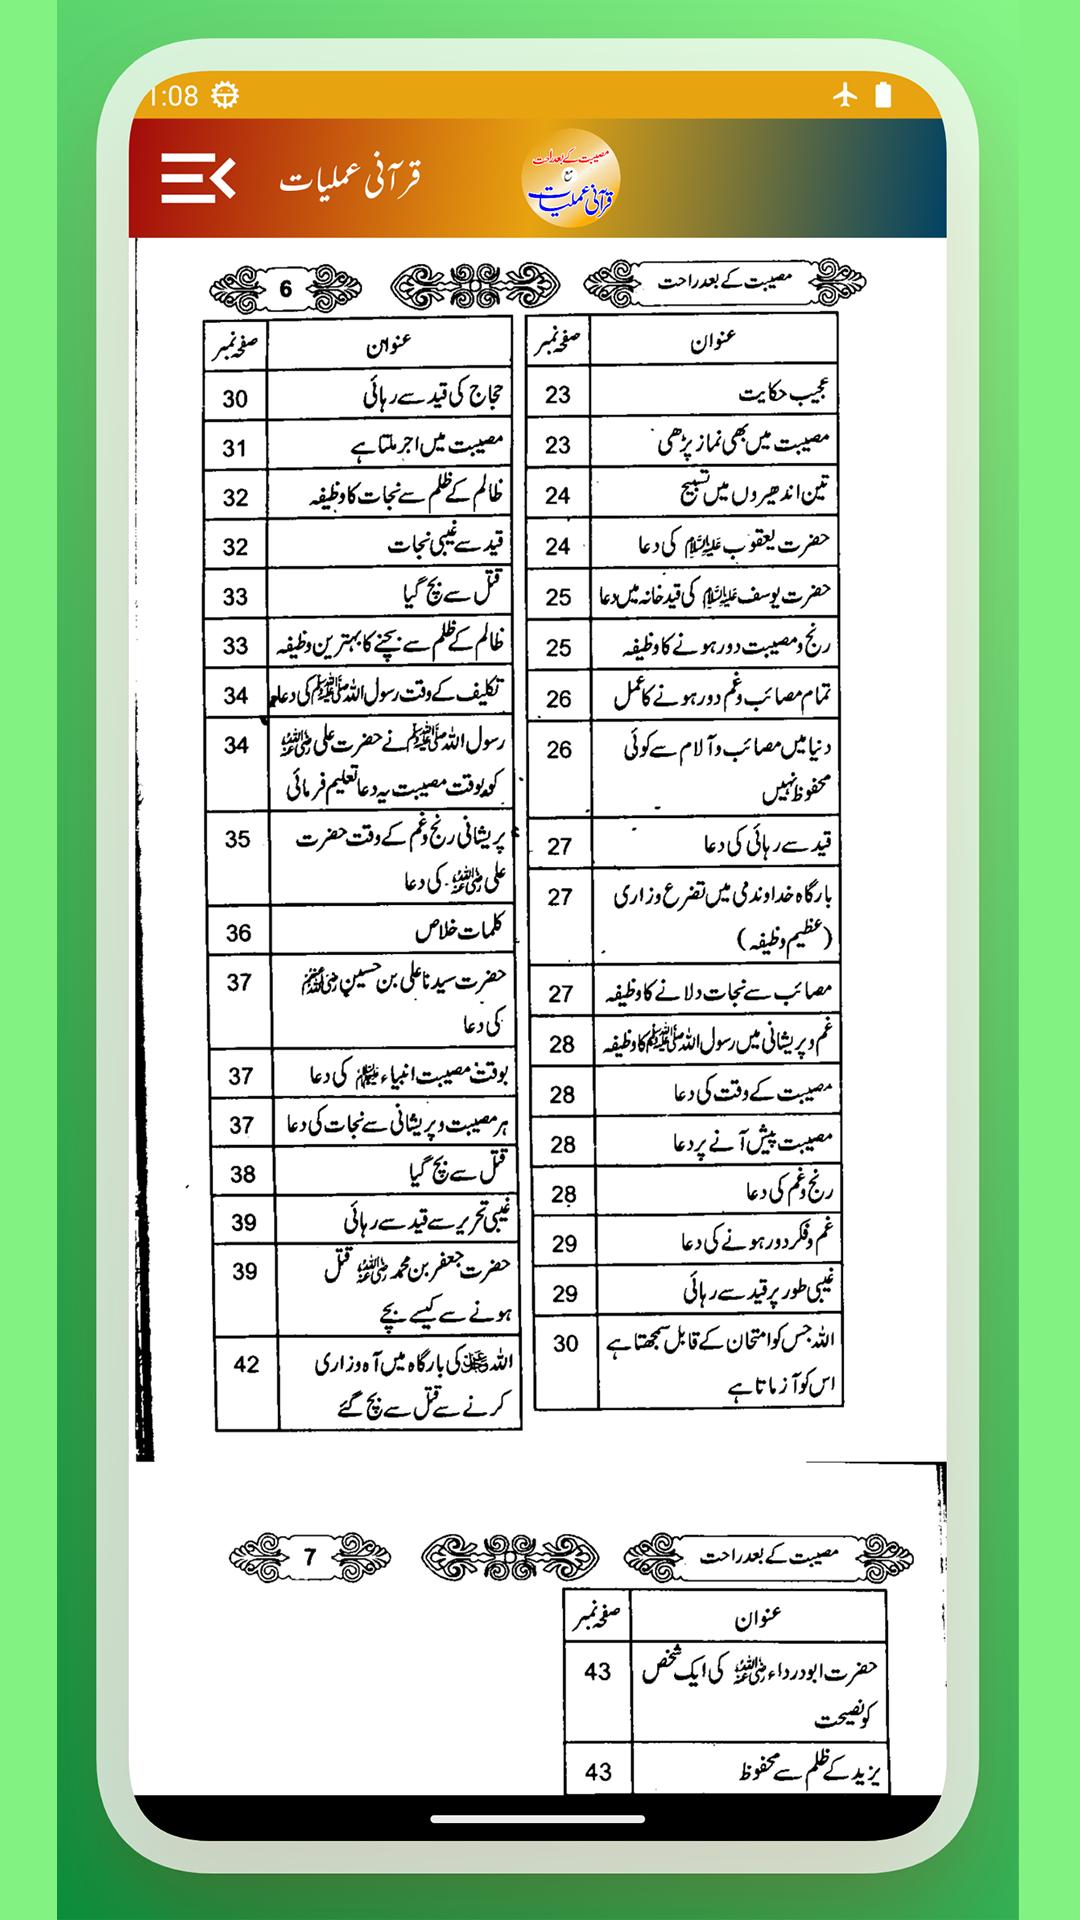 1:08
قرآنی عملیات
مصیبت کے بعد راحت
مع
قرآنی عملیات
مصیبت کے بعد راحت
6
عنوان صفحہ نمبر
عجیب حکایت 23
مصیبت میں بھی نماز پڑھی 23
تین اندھیروں میں تسبیح 24
حضرت یعقوب علیہ السلام کی دعا 24
حضرت یوسف علیہ السلام کی قید خانہ میں دعا 25
رنج و مصیبت دور ہونے کا وظیفہ 25
تمام مصائب و غم دور ہونے کا عمل 26
دنیا میں مصائب و آلام سے کوئی 26
محفوظ نہیں
قید سے رہائی کی دعا 27
بارگاہ خداوندمی میں تضرع وزاری 27
(عظیم وظیفہ)
مصائب سے نجات دلانے کا وظیفہ 27
غم و پریشانی میں رسول اللہ ﷺ کا وظیفہ 28
مصیبت کے وقت کی دعا 28
مصیبت پیش آنے پر دعا 28
رنج و غم کی دعا 28
غم و فکر دور ہونے کی دعا 29
غیبی طور پر قید سے رہائی 29
اللہ جس کو امتحان کے قابل سمجھتا ہے 30
اس کو آزماتا ہے
عنوان صفحہ نمبر
حجاج کی قید سے رہائی 30
مصیبت میں اجر ملتا ہے 31
ظالم کے ظلم سے نجات کا وظیفہ 32
قید سے غیبی نجات 32
قتل سے بچ گیا 33
ظالم کے ظلم سے بچنے کا بہترین وظیفہ 33
تکلیف کے وقت رسول اللہ ﷺ کی دعا 34
رسول اللہ ﷺ نے حضرت علی رضی اللہ عنہ 34
کو بوقت مصیبت یہ دعا تعلیم فرمائی
پریشانی رنج و غم کے وقت حضرت 35
علی رضی اللہ عنہ کی دعا
کلمات خلاص 36
حضرت سیدنا علی بن حسین 37
کی دعا
بوقت مصیبت انبیاء کی دعا 37
ہر مصیبت و پریشانی سے نجات کی دعا 37
قتل سے بچ گیا 38
غیبی تحریر سے قید سے رہائی 39
حضرت جعفر بن محمد رضی اللہ عنہ قتل 39
ہونے سے کیسے بچے
اللہ کی بارگاہ میں آہ وزاری 42
کرنے سے قتل سے بچ گئے
مصیبت کے بعد راحت
7
عنوان صفحہ نمبر
حضرت ابودرداء رضی اللہ عنہ کی ایک شخص 43
کو نصیحت
یزید کے ظلم سے محفوظ 43